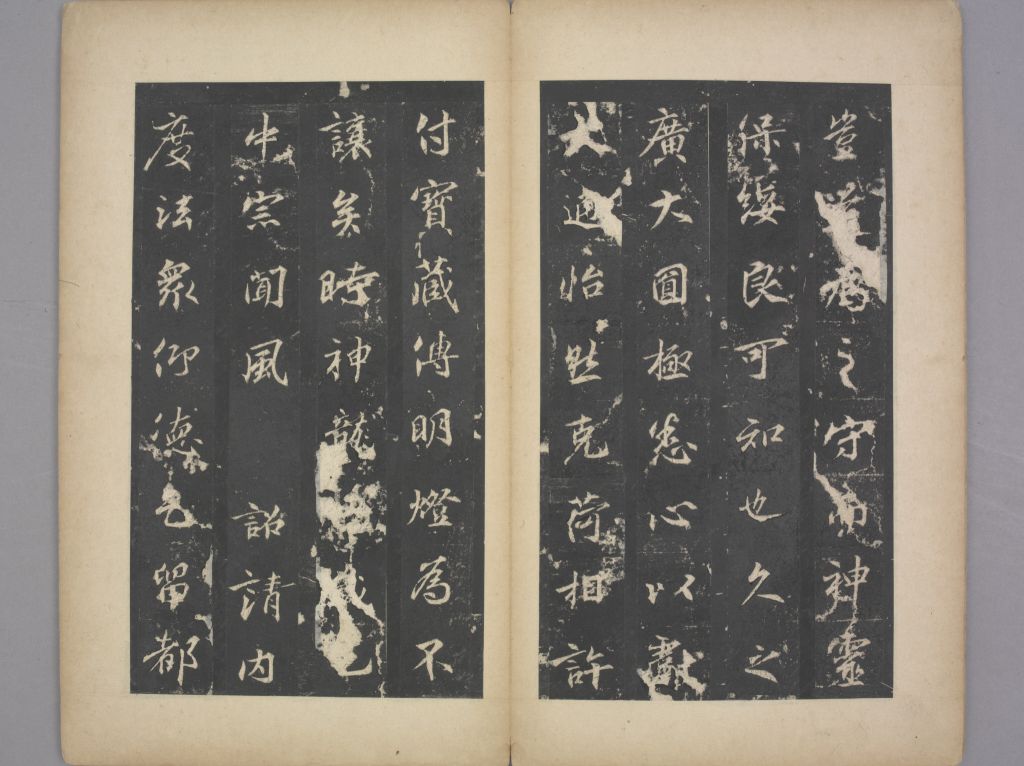 豈為之守而神靈
保綏良可知也久之
廣大圓極悉心以獻
大通怡然克荷相許
付寶藏傳明燈為不
讓矣時神龍
中宗聞風 詔請内
度法眾仰德乞留都